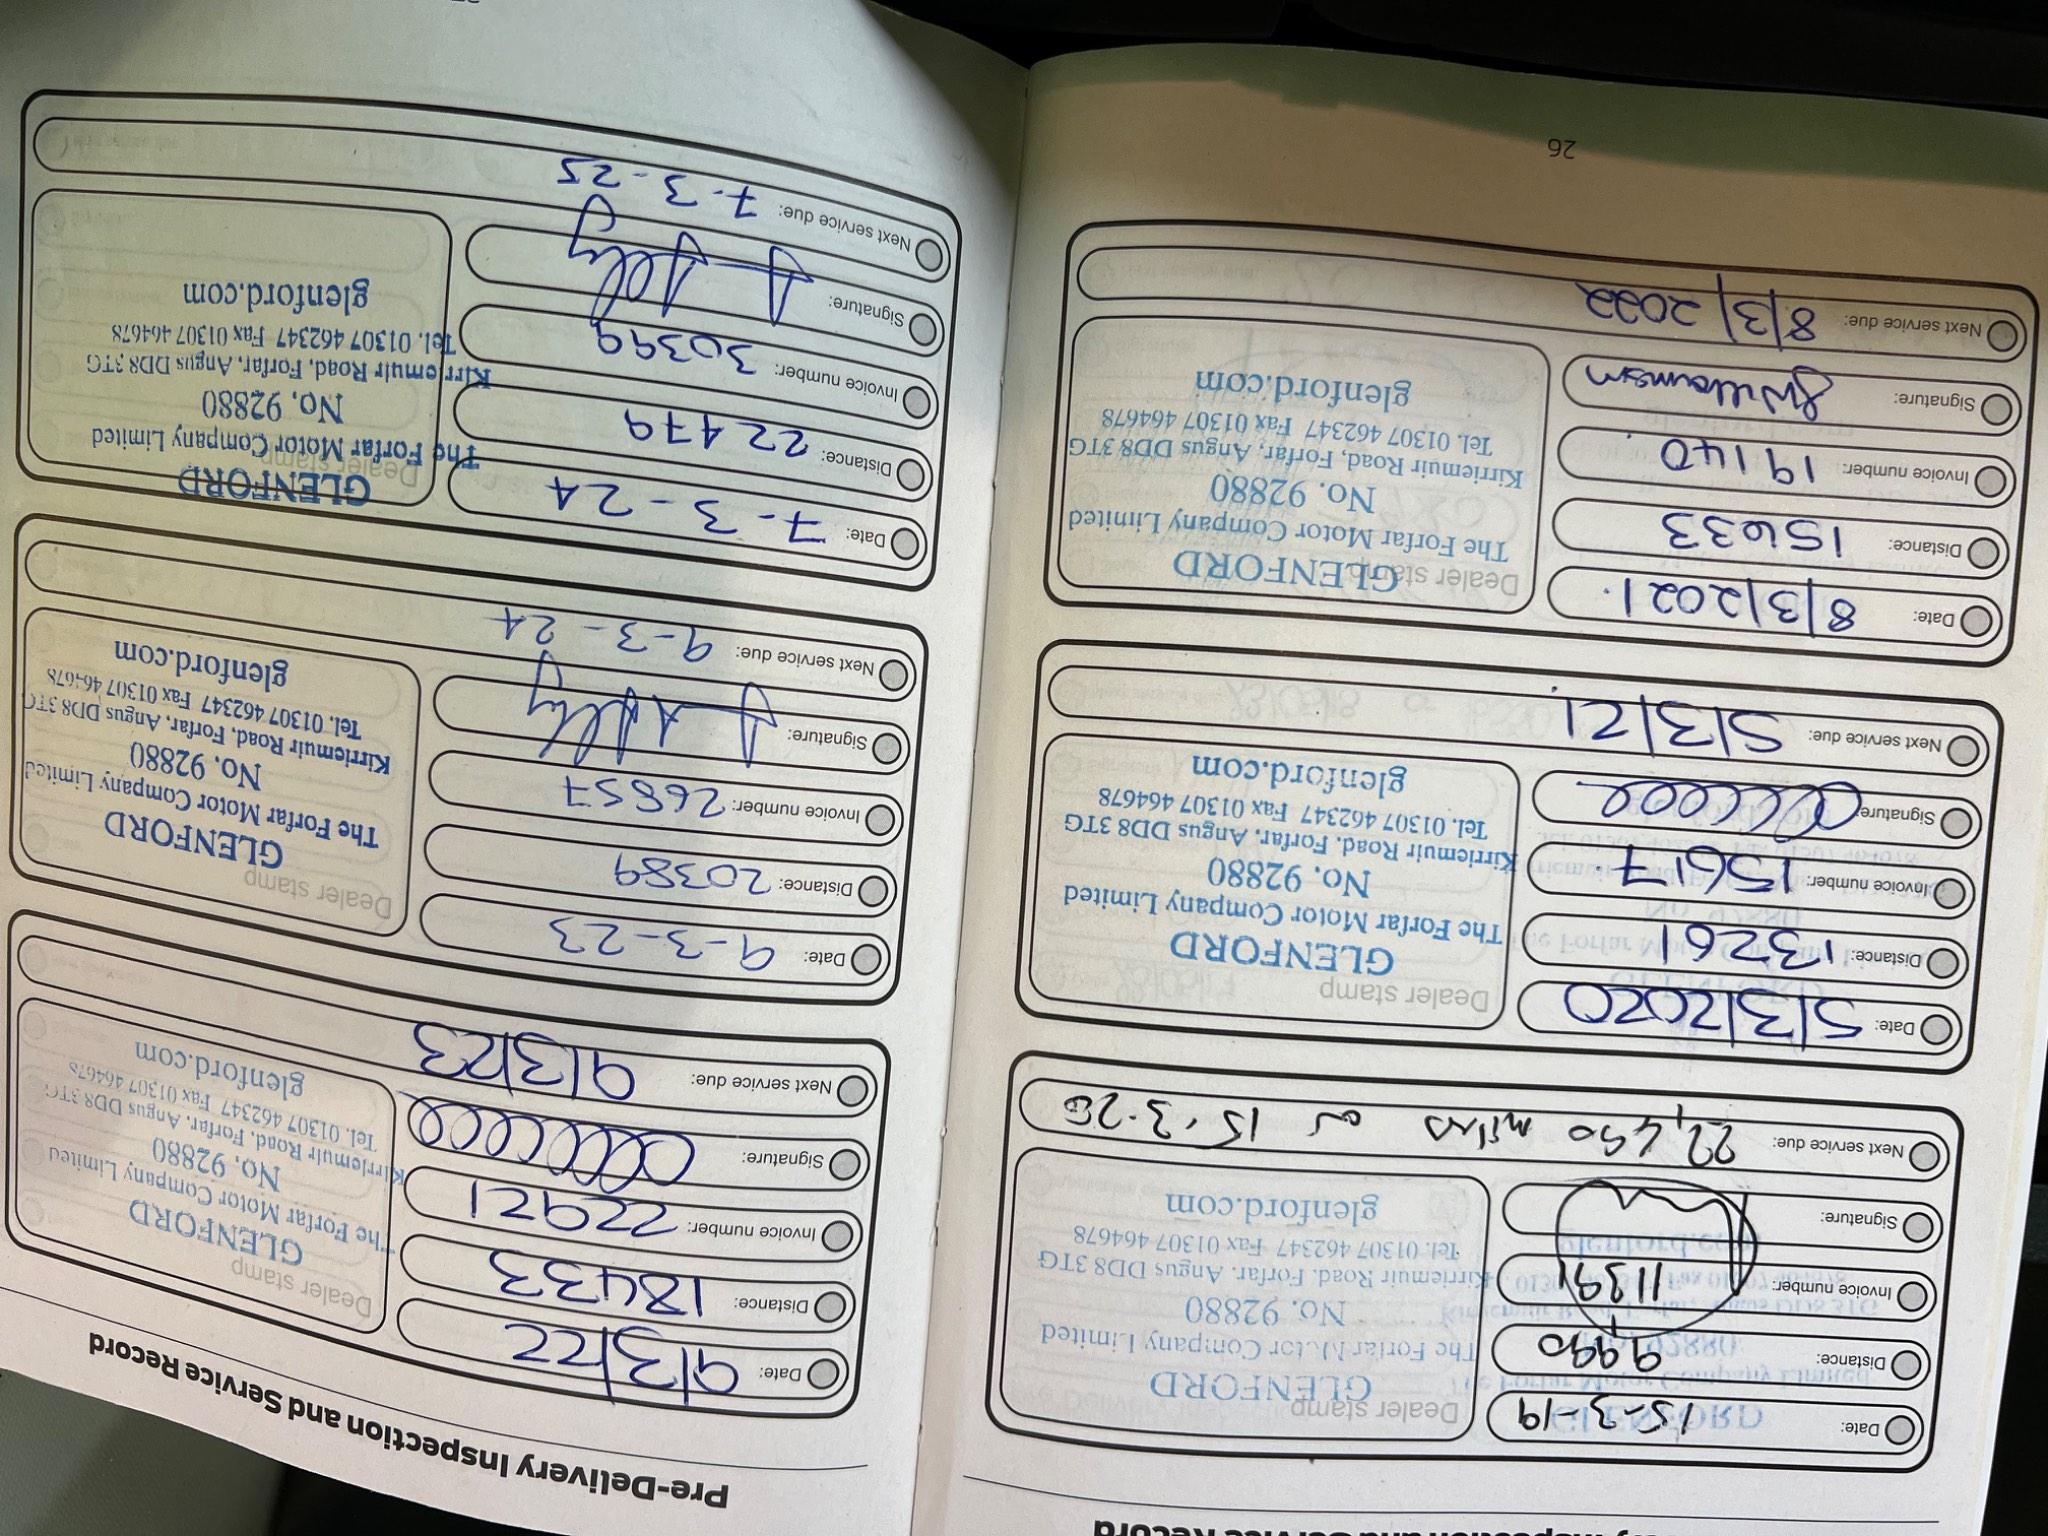 Inspection and Service Record
Date: 15-3-19
Distance: 9990
Invoice number:
Signature:
Next service due: 22,490 miles or 15.3.20
Dealer stamp
GLENFORD
The Forfar Motor Company Limited
No. 92880
Kirriemuir Road, Forfar, Angus DD8 3TG
Tel. 01307 462347 Fax 01307 464678
glenford.com
Date: 5/3/2020
Distance: 13261
Invoice number: 15617
Signature:
Next service due: 5/3/21
Dealer stamp
GLENFORD
The Forfar Motor Company Limited
No. 92880
Kirriemuir Road, Forfar, Angus DD8 3TG
Tel. 01307 462347 Fax 01307 464678
glenford.com
Date: 8/3/2021.
Distance: 15633
Invoice number: 19140
Signature: JWilliamson
Next service due: 8/3/2022
Dealer stamp
GLENFORD
The Forfar Motor Company Limited
No. 92880
Kirriemuir Road, Forfar, Angus, DD8 3TG
Tel. 01307 462347 Fax 01307 464678
glenford.com
26
Pre-Delivery Inspection and Service Record
Date: 9/3/22
Distance: 18433
Invoice number: 22921
Signature:
Next service due: 9/3/23
Dealer stamp
GLENFORD
The Forfar Motor Company Limited
No. 92880
Kirriemuir Road, Forfar, Angus DD8 3TG
Tel. 01307 462347 Fax 01307 464678
glenford.com
Date: 9-3-23
Distance: 20389
Invoice number: 26857
Signature:
Next service due: 9-3-24
Dealer stamp
GLENFORD
The Forfar Motor Company Limited
No. 92880
Kirriemuir Road, Forfar, Angus DD8 3TG
Tel. 01307 462347 Fax 01307 464678
glenford.com
Date: 7-3-24
Distance: 22479
Invoice number: 30399
Signature:
Next service due: 7-3-25
Dealer stamp
GLENFORD
The Forfar Motor Company Limited
No. 92880
Kirriemuir Road, Forfar, Angus DD8 3TG
Tel. 01307 462347 Fax 01307 464678
glenford.com